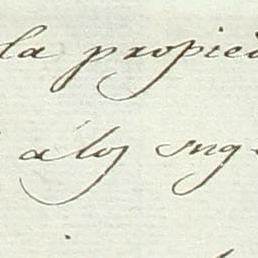 la propied
á los sug-